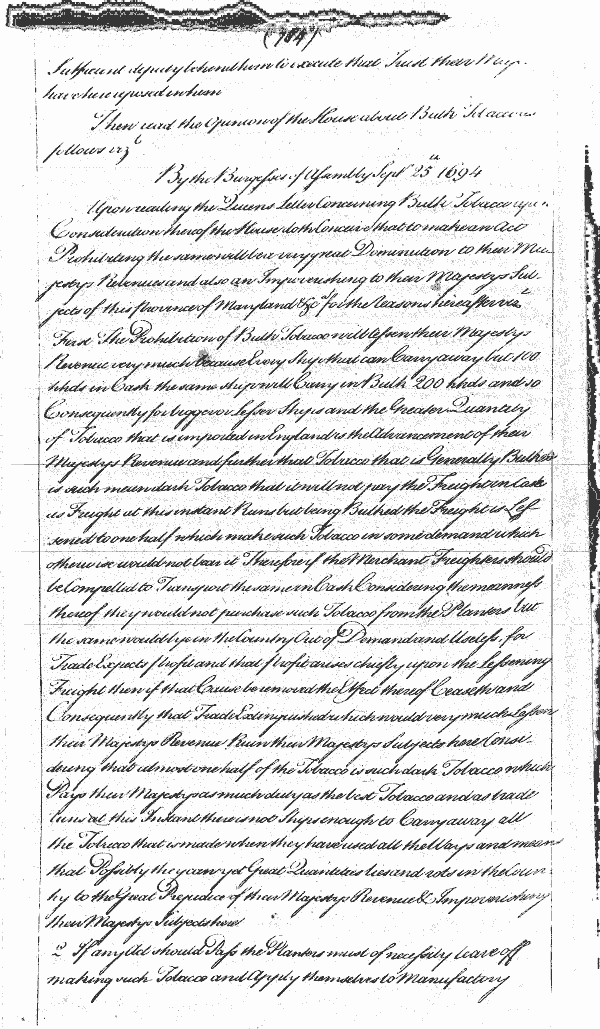 (784)
Sufficient deputy behend them to execute that Trust their May.
have here reposed in them
Then read the Opinion of the House about Bulk Tobacco as
follows vizt
By the Burgesses of Assembly Sept 25th 1694
Upon reading the Queens Letter Concerning Bulk Tobacco upon
Consideration thereof the House doth Conceive that to make an Act
Prohibiting the same will be a very great Diminution to their Ma-
jestys Revenues and also an Impoverishing to their Majestys Sub-
jects of this Province of Maryland &ca for the Reasons hereafter vizt
First The Prohibition of Bulk Tobacco will lessen their Majestys
Revenue very much because Every Ship that can Carry away but 100
hhds in Cask the same ship will Carry in Bulk 200 hhds and so
Consequently for bigger or Lesser Ships and the Greater Quantity
of Tobacco that is imported in England is the Advancement of their
Majestys Revenue and further that Tobacco that is Generally Bulked
is such mean dark Tobacco that it will not pay the Freight in Cask
as Freight at this instant Runs but being Bulked the Freight is Les-
sened to one half which make such Tobacco in some demand which
otherwise would not bear it Therefore if the Merchant Freighters should
be Compelled to Transport the same in Cask Considering the meanness
thereof they would not purchase such Tobacco from the Planters but
the same would lye in the Country Out of Demand and Useless, for
Trade Expects Profit and that Profit arises chiefly upon the Lessening
Freight then if that Cause be removed the Effect thereof Ceaseth and
Consequently that Trade Extinguished which would very much Lessen
their Majestys Revenue Ruin their Majestys Subjects here Consi-
dering that almost one half of the Tobacco is such dark Tobacco which
Pays their Majestys as much duty as the best Tobacco and as trade
runs at this Instant there is not Ships enough to Carry away all
the Tobacco that is made when they have used all the Ways and means
that Possibly they can yet Great Quantitis lies and rots in the Coun-
try to the Great Prejudice of their Majestys Revenue & Impoverishing
their Majestys Subjects here
2 If any Act should Pass the Planters must of necessity leave off
making such Tobacco and Apply themselves to Manufactory